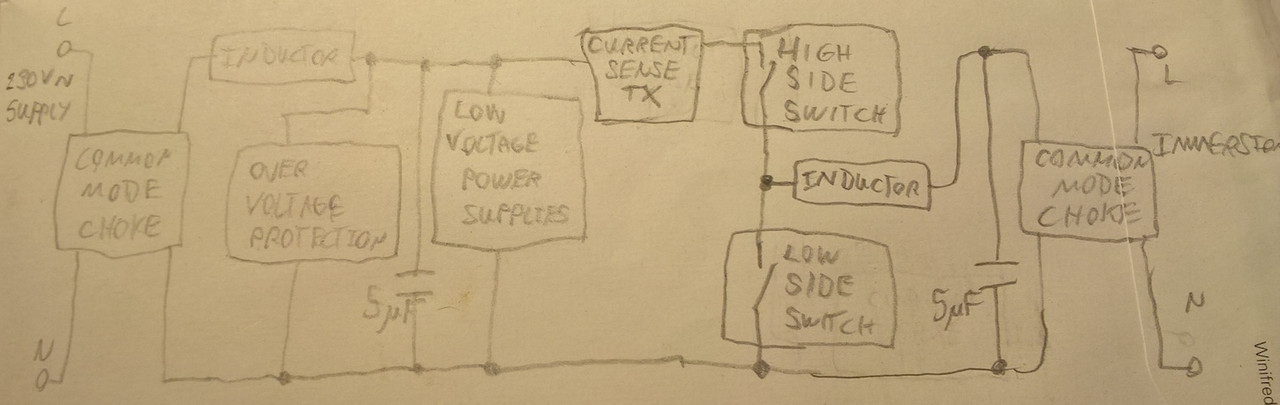 L
230V~
SUPPLY
N
COMMON
MODE
CHOKE
INDUCTOR
OVER
VOLTAGE
PROTECTION
5μF
LOW
VOLTAGE
POWER
SUPPLIES
CURRENT
SENSE
TX
HIGH
SIDE
SWITCH
INDUCTOR
LOW
SIDE
SWITCH
5μF
COMMON
MODE
CHOKE
L
IMMERSION
N
Winifred